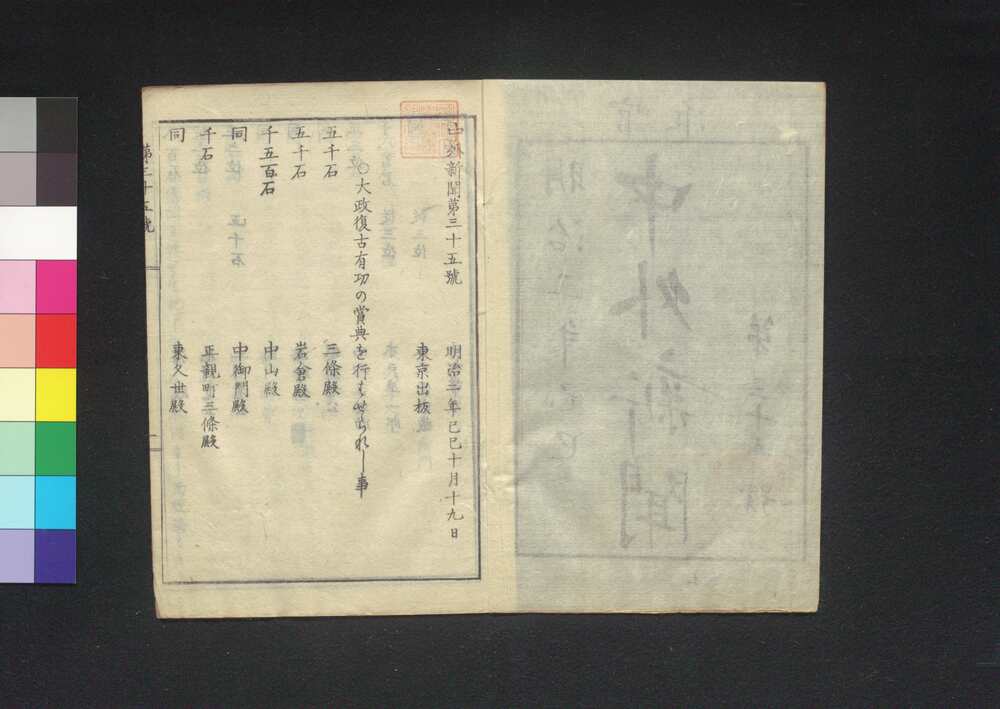 中外新聞第三十五號 明治二年己巳十月十九日
東京出板
○大政復古有功の賞典を行はせられし事
五千石 三條殿
五千石 岩倉殿
千五百石 中山殿
同 中御門殿
千石 正親町三條殿
同 東久世殿
第三十五號